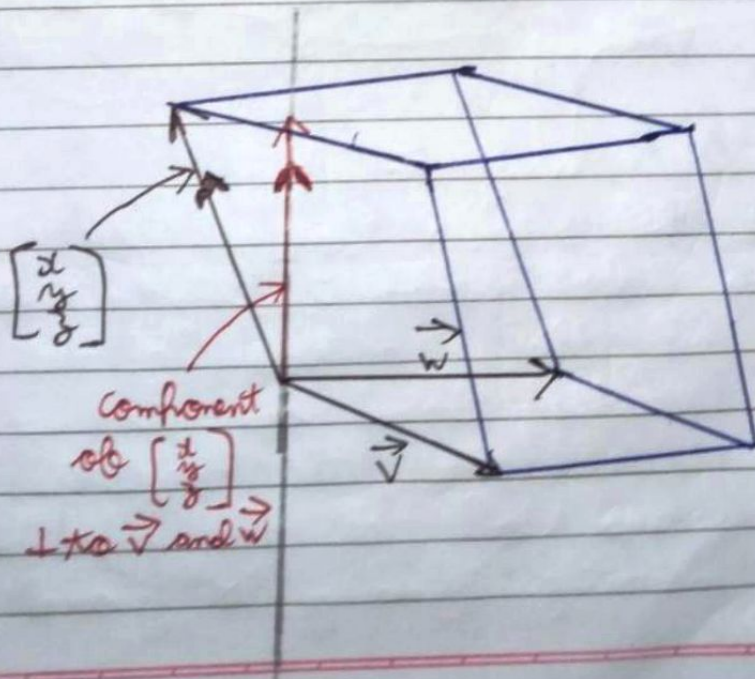 [x
y
z]
w
v
component
of [x
y
z]
⊥ to v and w